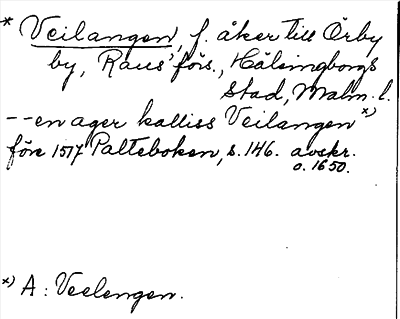 * Veilangen, f. åker till Örby
by, Raus' förs., Hälsingborgs
stad, Malm. l.
--en ager kalliss Veilangen x)
före 1517 Palteboken, s. 146. avskr.
o. 1650.
x) A: Veelengen.